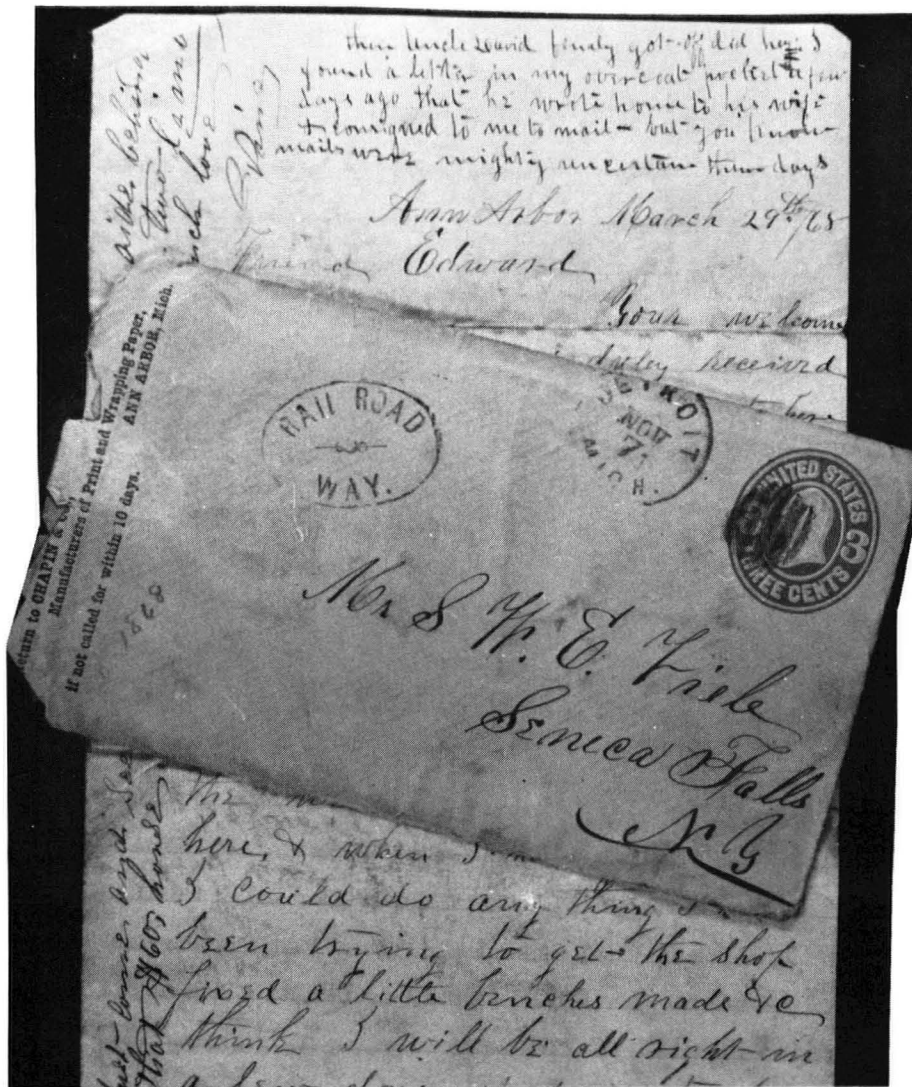 then Uncle David finaly got off did he. I
found a letter in my overcoat pocket a few
days ago that he wrote home to his wife
& consigned to me to mail - but you know
mails were mighty uncertain them days
Ann Arbor March 29th/65
Friend Edward
Your welcome
duley received
aside being
two
much love
Return to CHAPIN & Co.,
Manufacturers of Print and Wrapping Paper,
ANN ARBOR, Mich.
if not called for within 10 days.
1868
RAIL ROAD
WAY.
DETROIT
NOV
7
MICH.
UNITED STATES
THREE CENTS
Mr S W. E. Viele
Seneca Falls
N Y
the
here, & when
I could do any thing
been trying to get the shop
fixed a little benches made &c
think I will be all right in
a few days
that $1605 horse